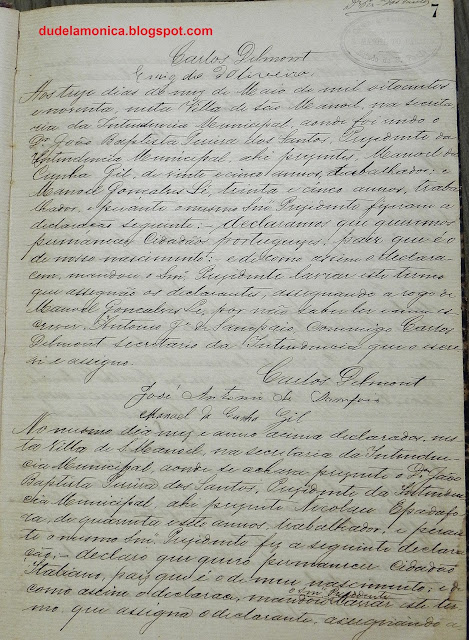 dudelamonica.blogspot.com
7
Carlos Delmont
Aos tres dias do mez de Maio de mil oitocentos
e noventa, nesta Villa de São Manoel, na secreta-
ria da Intendencia Municipal, aonde foi vindo o
Dr João Baptista dos Santos, Presidente da
Intendencia Municipal, ahi presentes, Manoel da
Cunha Gil, de vinte e cinco annos, trabalhador, e
Manoel Gonçalves Sé, trinta e cinco annos, traba-
lhador, e perante o mesmo Snr Presidente fizeram a
declaração seguinte: - declaramos que queremos
permanecer Cidadãos portuguezes, paiz que é o
de nosso nascimento: e de como assim o declara-
ram, mandou o Snr Presidente lavrar este termo
que assignão os declarantes, assignando a rogo de
Manoel Gonçalves Sé, por não saber ler nem es-
crever, Antonio de Sampaio, Commigo Carlos
Delmont secretario da Intendencia que o escre-
vi e assigno.
Carlos Delmont
José Antonio de Sampaio
Manoel da Cunha Gil
No mesmo dia mez e anno acima declarados, nes-
ta Villa de S. Manoel, na secretaria da Intenden-
cia Municipal, aonde se achava presente o Dr João
Baptista dos Santos, Presidente da Intenden-
cia Municipal, ahi presente Nicolau Spadafo-
ra, de quarenta e sete annos, trabalhador, e peran-
te o mesmo Snr Presidente fez a seguinte declara-
ção; - declaro que quero permanecer Cidadão
Italiano, paiz que é o de meu nascimento; e de
como assim o declarou, mandou o Snr Presidente lavrar este ter-
mo que assigna o declarante, assignando a